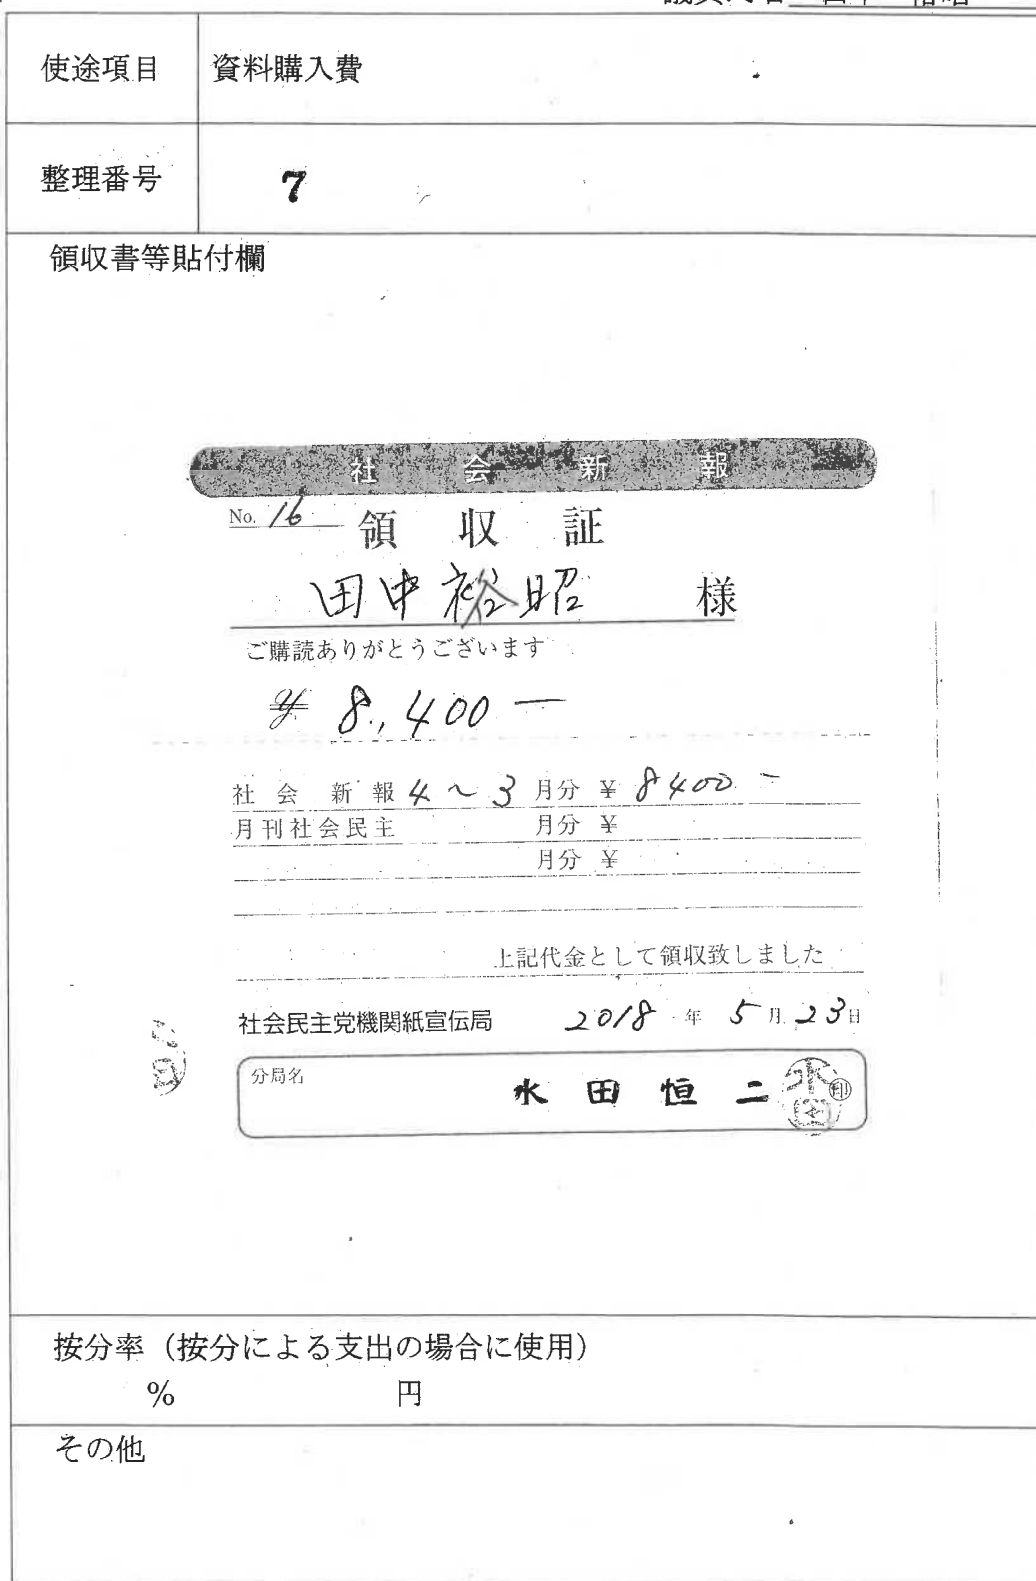 使途項目 資料購入費
整理番号 7
領収書等貼付欄
社会新報
No. 16 領収証
田中裕昭 様
ご購読ありがとうございます
¥ 8,400-
社会新報 4～3 月分 ¥ 8400-
月刊社会民主 月分 ¥
月分 ¥
上記代金として領収致しました
社会民主党機関紙宣伝局 2018年 5月 23日
分局名 水田恒二 印
水田
按分率（按分による支出の場合に使用）
% 円
その他